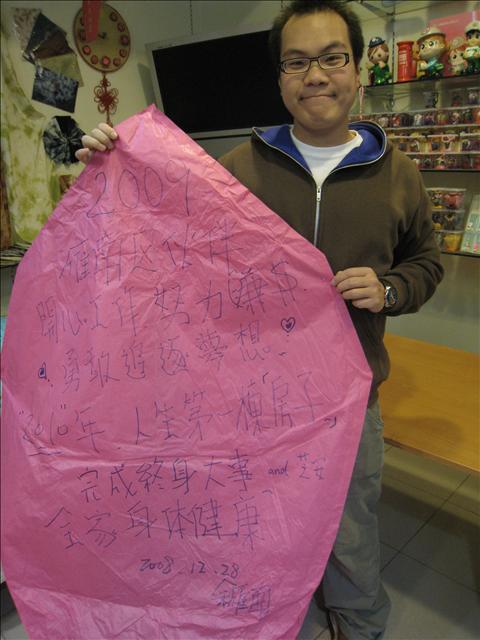 2009
雁南兴伙伴
開心工作努力賺$.
勇敢追逐夢想
"2010"年.人生第一棟「房子」
完成終身大事 and 芝安
全家身体健康
2008.12.28